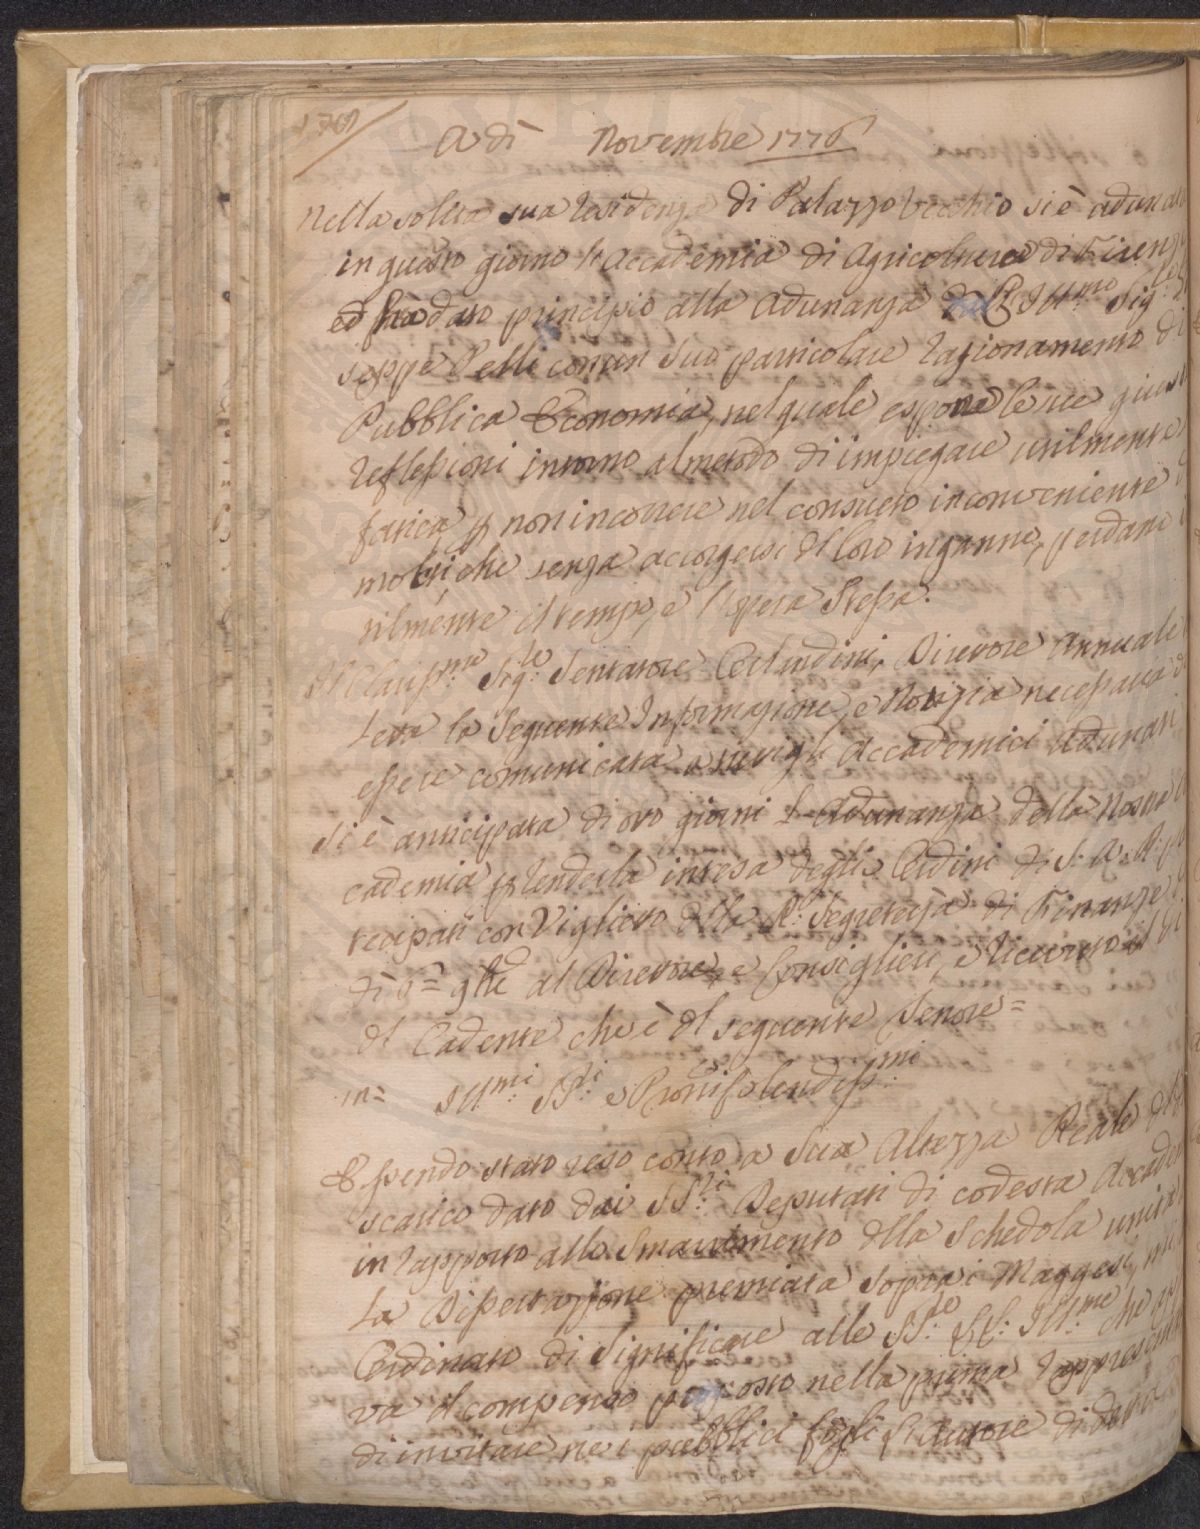 Adì Novembre 1776
Nella solita sua Residenza di Palazzo Vecchio si è adunata
in questo giorno l'Accademia di Agricoltura di Firenze
ed ha dato principio alla Adunanza Ill.mo Sig.
seppe Pelli con un suo particolare Ragionamento di
Pubblica Economia, nel quale espone le sue
reflessioni intorno al metodo di impiegare utilmente
fatica p non incorrere nel consueto inconveniente
molti, che senza accorgersi del loro inganno, perdano
tilmente il tempo, e l'opera stessa.
Il Clariss.mo Sig.re Senatore Direttore Annuale
la seguente Informazione, e Notizia necessaria
essere comunicata a tutti gli Accademici Adunati
Si è anticipata di otto giorni l'Adunanza della Nostra
cademia p renderla intesa degli Ordini di S. A. R.
tecipati con Viglietto della R. Segreteria di Finanze
dì al Direttore, e Consiglieri, e ricevuto il dì
del Cadente che è del seguente Tenore=
Ill.mi SS.ri e Pr̃oni Splendiss.mi
Essendo stato reso conto a Sua Altezza Reale
scarico dato dai SS.ri Deputati di codesta
in rapporto allo Smarrimento della Schedola
la Dissertazione premiata sopra i Maggesi, mi
Ordinato di Significare alle SS.rie Ill.me che
va il compenso proposto nella prima
di invitare ne i pubblici fogli l'Autore di